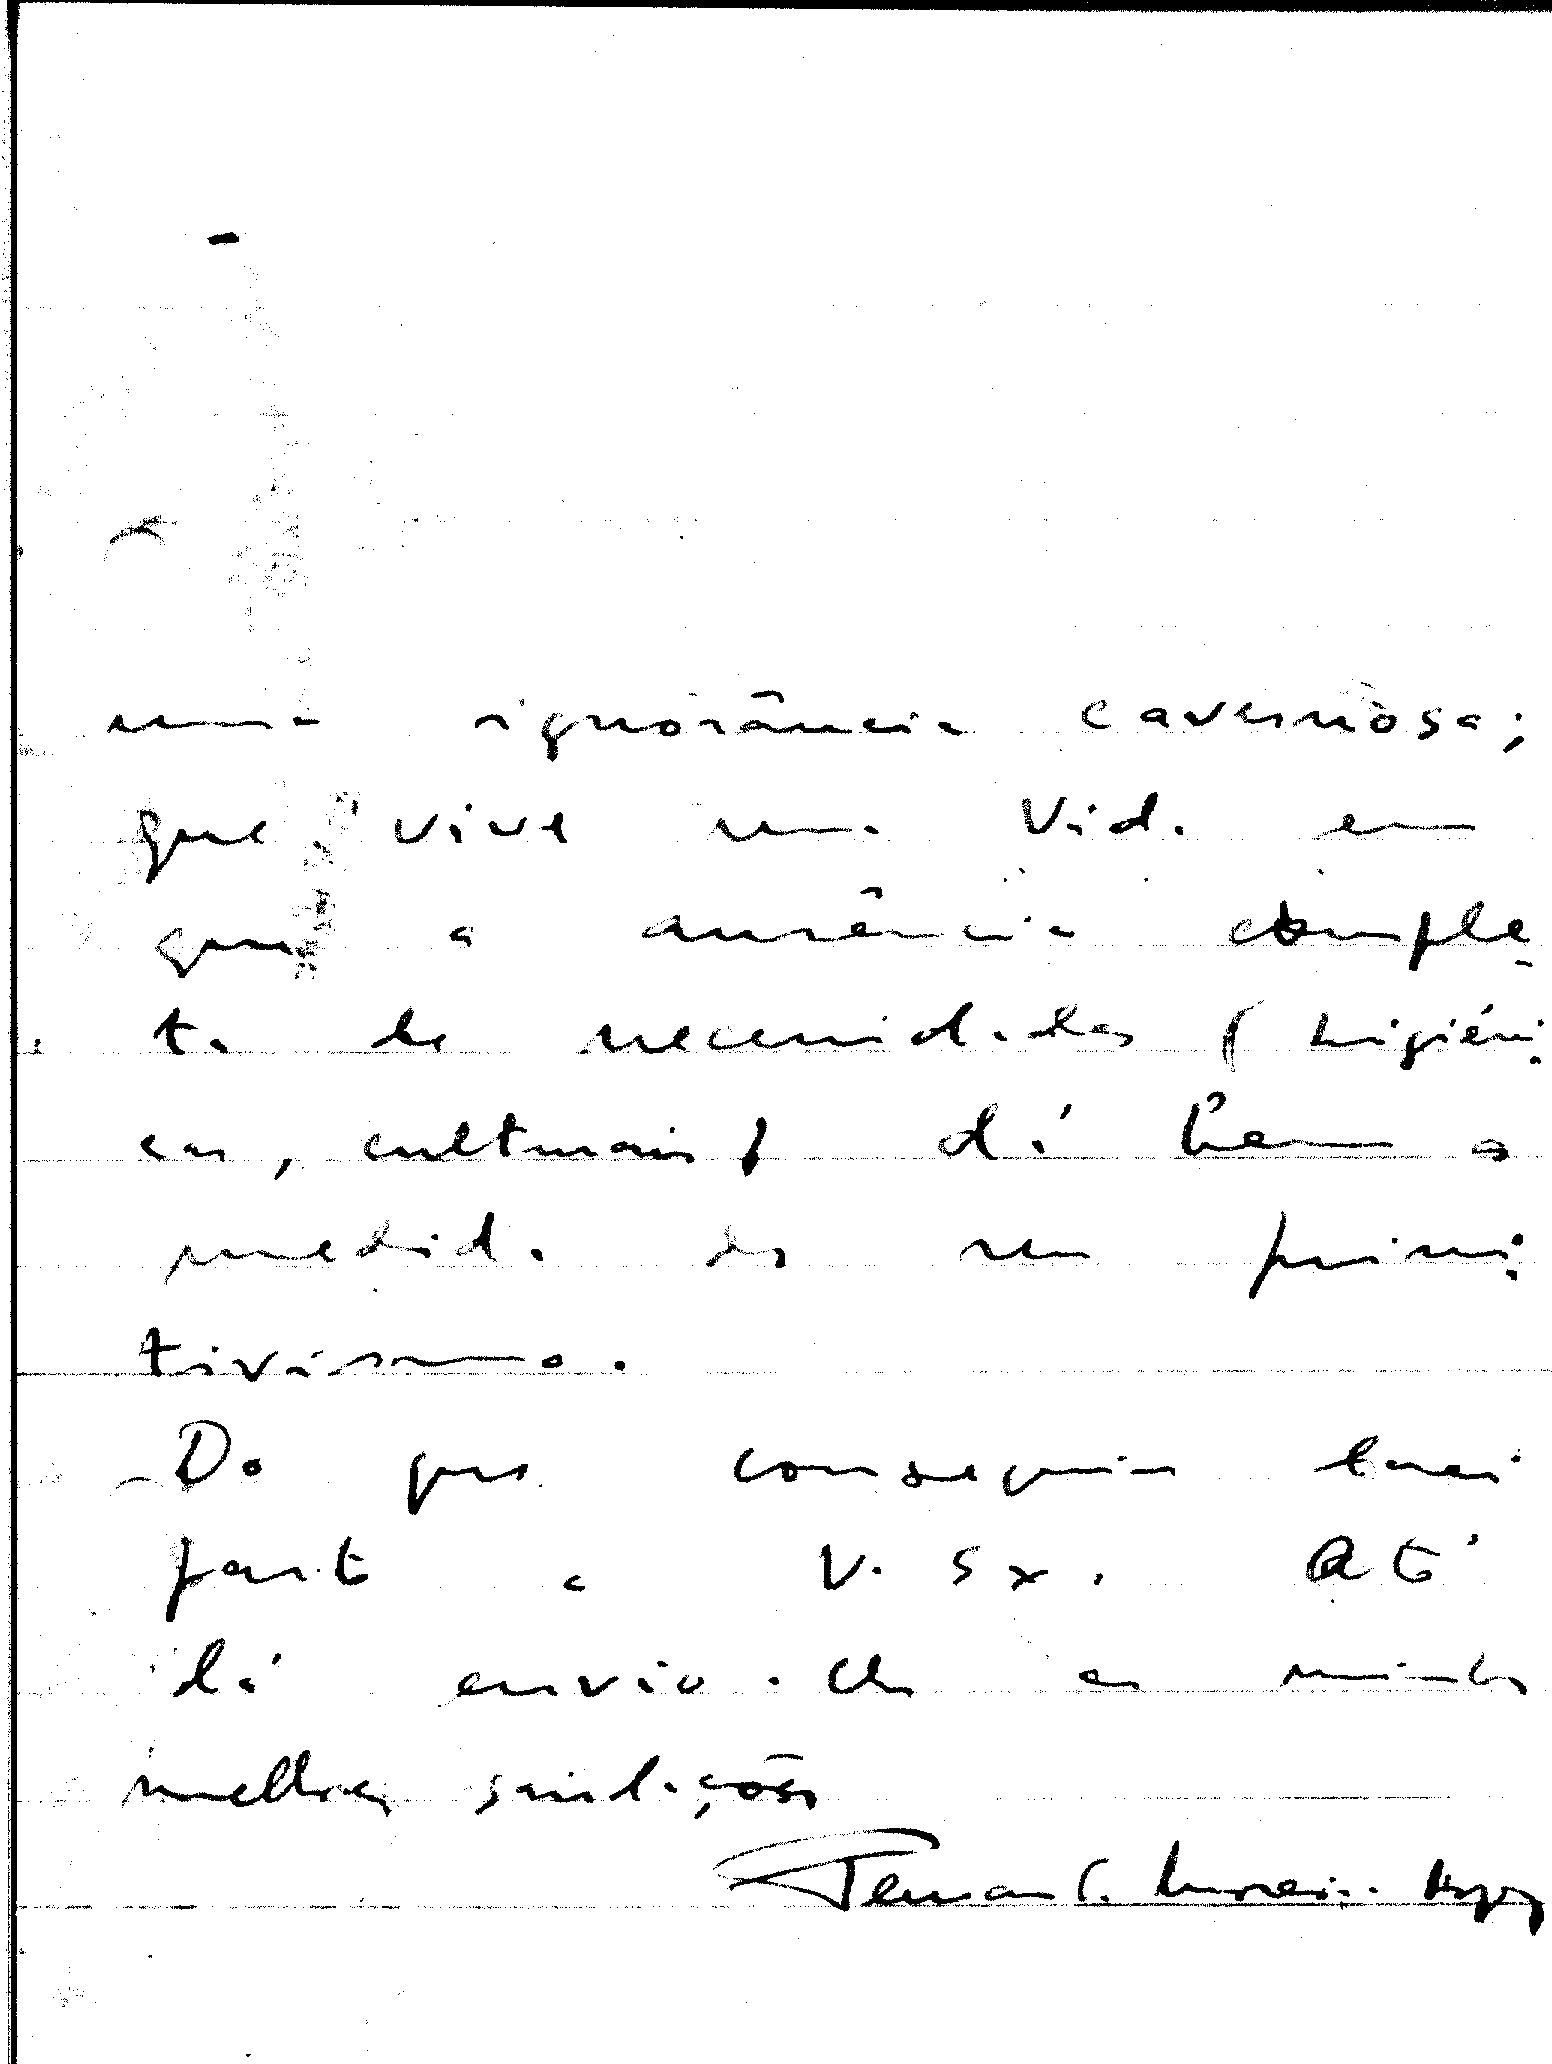 uma ignorância cavernosa;
que vive uma vida em
que a ausência comple-
ta de necessidades (higiéni-
cas, culturais) dá bem a
medida do seu primi-
tivismo.
Do que conseguir darei
parte a V. Ex. Até
lá envio-lhe as minhas
melhores saudações